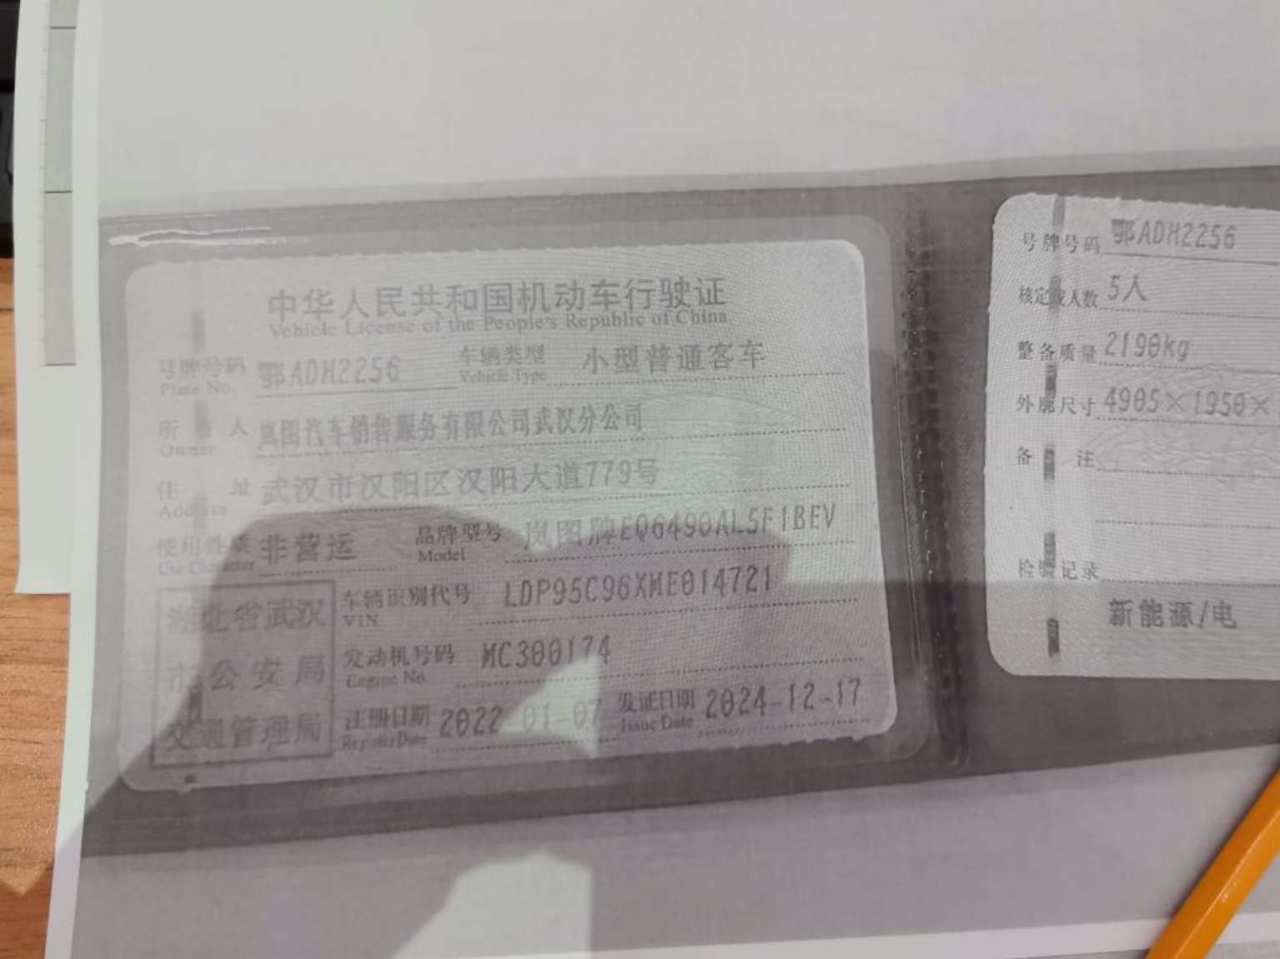 中华人民共和国机动车行驶证
Vehicle License of the People's Republic of China
号牌号码 鄂ADH2256 车辆类型 小型普通客车
Plate No. Vehicle Type
所 人 岚图汽车销售服务有限公司武汉分公司
Owner
住 址 武汉市汉阳区汉阳大道779号
Address
使用性质 非营运 品牌型号 岚图牌EQ6490AL5F1BEV
Use Character Model
湖北省武汉
市公安局
交通管理局
车辆识别代号 LDP95C96XME014721
VIN
发动机号码 MC300174
Engine No.
注册日期 2022-01-07 发证日期 2024-12-17
Register Date Issue Date
号牌号码 鄂ADH2256
核定载人数 5人
整备质量 2190kg
外廓尺寸 4905×1950×
备 注
检验记录
新能源/电